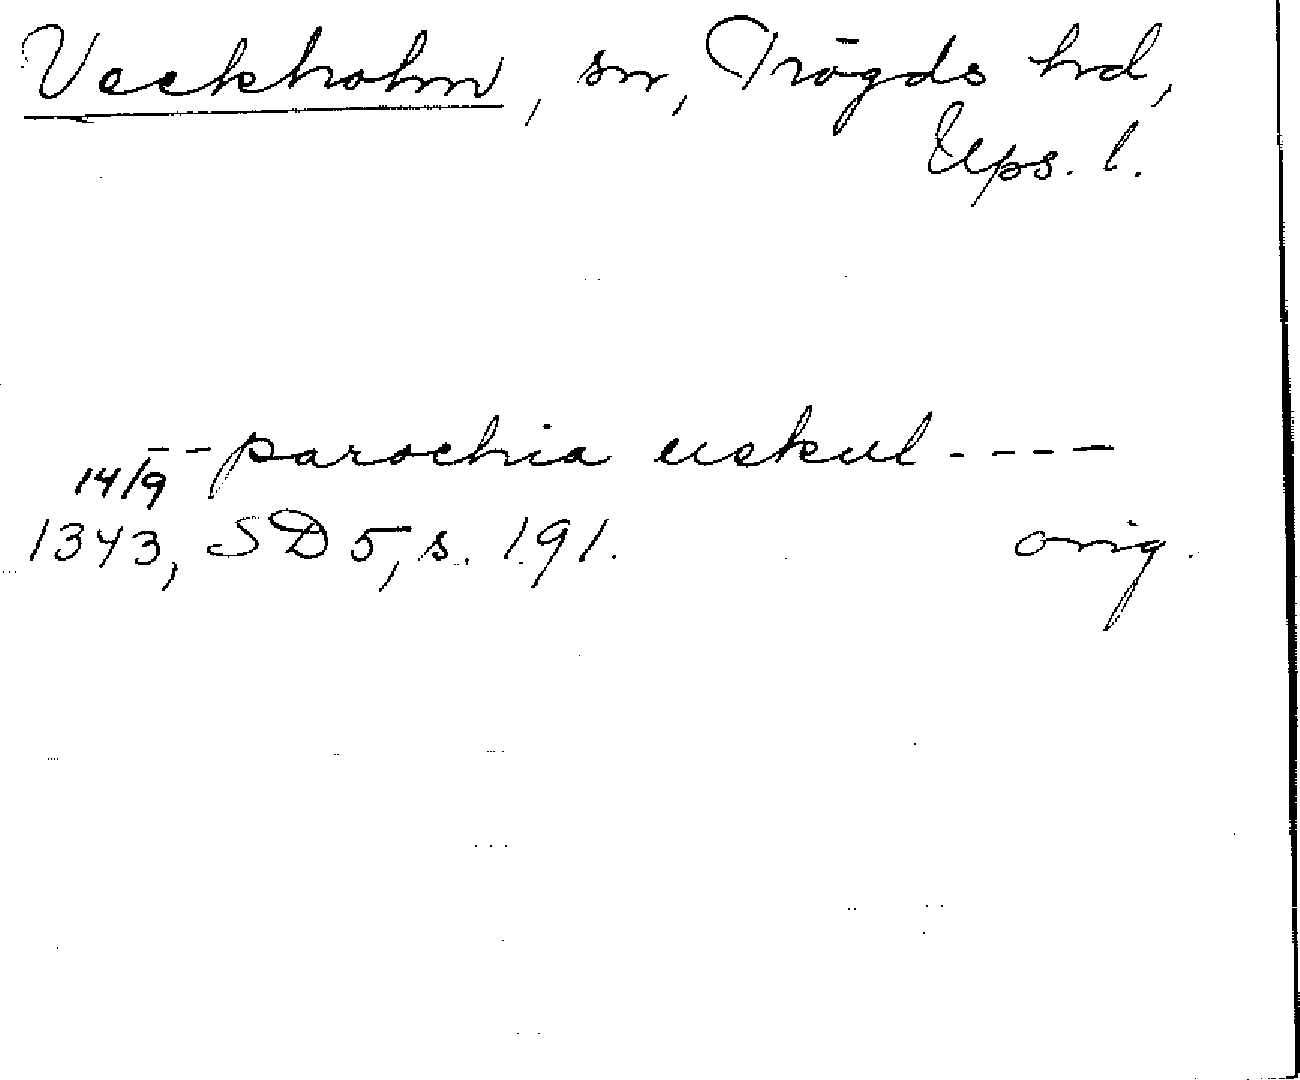 Veckholm, sn, Trögds hd,
Ups. l.
--parochia uskul----
14/9
1343, SD 5, s. 191. orig.